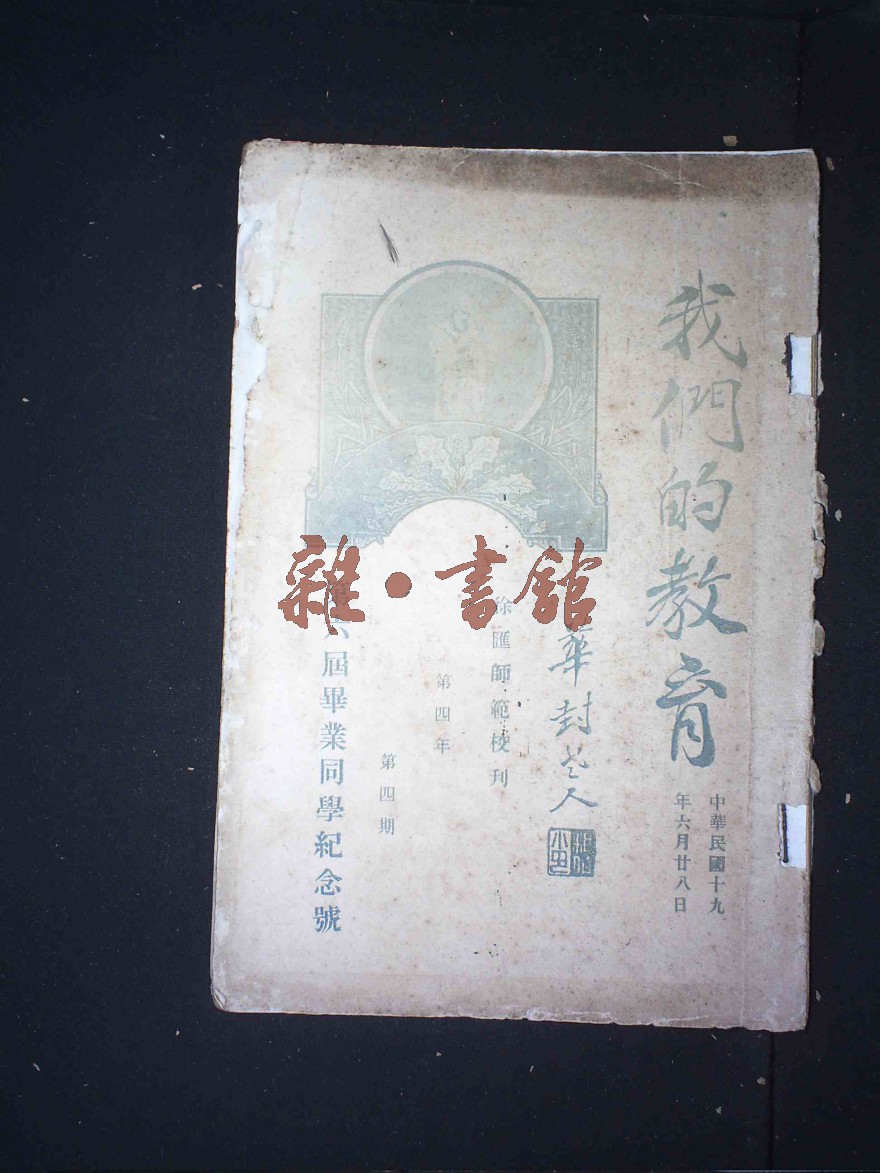 我們的教育
中華民國十九
年六月廿八日
華封老人
徐匯師範校刊
第四年
第四期
第六屆畢業同學紀念號
雜·書館